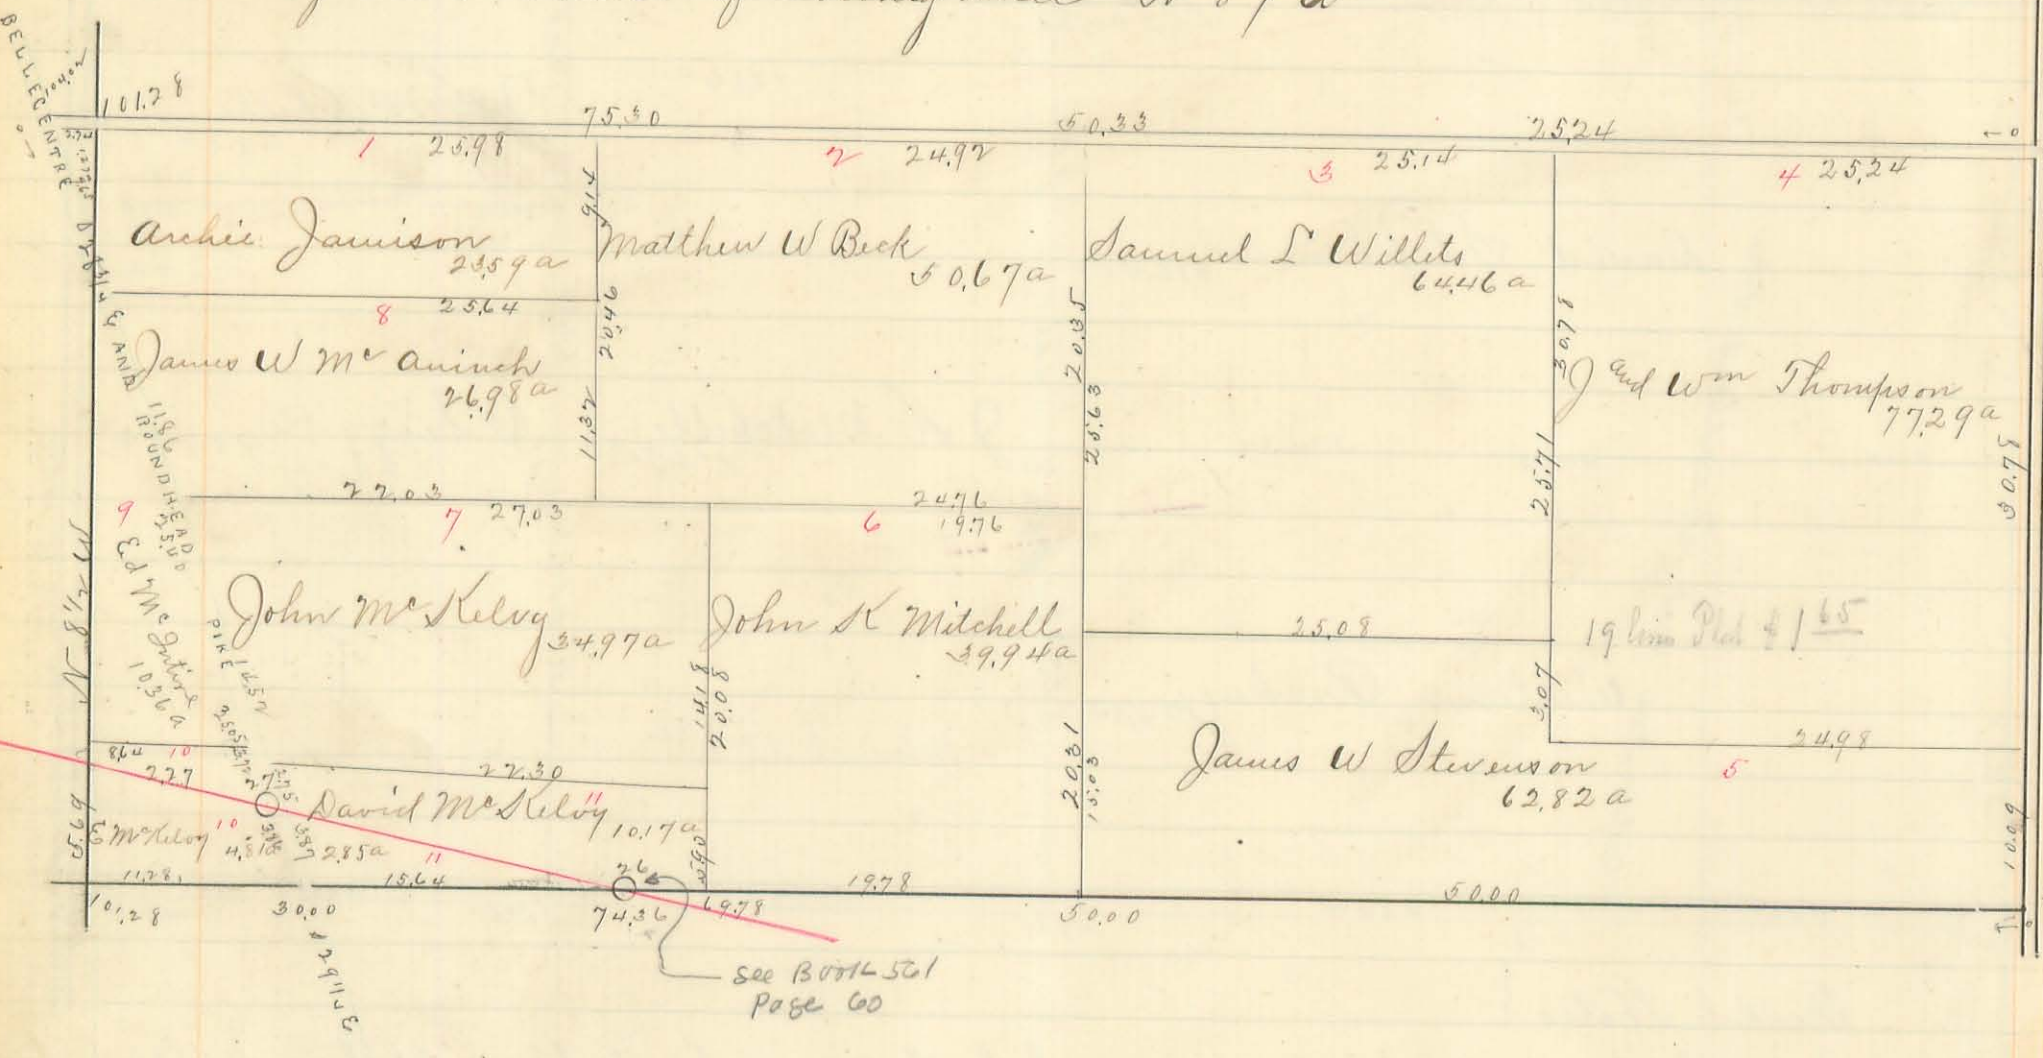 BELLECENTRE
101.28
75.30
50.33
25.24
1 25.98
2 24.92
3 25.14
4 25.24
Archie Jamison
23.59 a
9.14
Matthew W Beck
50.67 a
Samuel L Willets
64.46 a
8 25.64
James W Mc Aninch
26.98 a
20.46
11.32
20.35
25.63
30.78
J and Wm Thompson
77.29 a
25.71
30.78
AND
11.86
ROUNDHEAD
25.00
PIKE
22.03
7 27.03
24.76
6 19.76
9
Ed McIntire
10.36 a
N 8 1/2 W
John Mc Kelvy
34.97 a
John K Mitchell
39.94 a
14.18
20.08
25.08
19 lines Plat $1 65
3.07
24.98
James W Stevenson
62.82 a
5
20.31
15.03
10.09
8.64 10
2.27
22.30
David Mc Kelvy 11
10.17 a
5.90
5.69
E McKelvy 10
3.87
2.85 a
11
11.28
15.64
26
19.78
50.00
101.28
30.00
74.36
69.78
50.00
See Book 561
Page 60